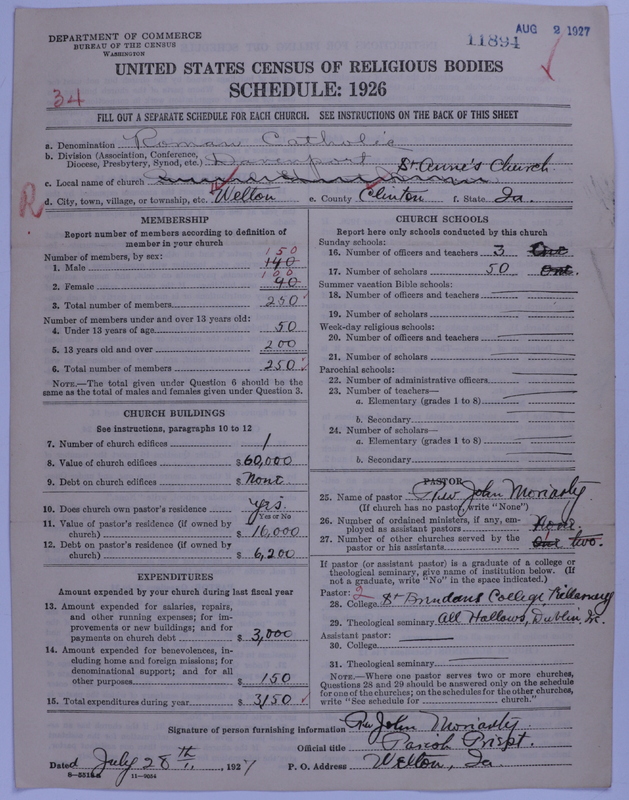 DEPARTMENT OF COMMERCE
BUREAU OF THE CENSUS
WASHINGTON
11894
AUG 2 1927
UNITED STATES CENSUS OF RELIGIOUS BODIES
SCHEDULE: 1926
34
FILL OUT A SEPARATE SCHEDULE FOR EACH CHURCH. SEE INSTRUCTIONS ON THE BACK OF THIS SHEET
a. Denomination Roman Catholic
b. Division (Association, Conference, Diocese, Presbytery, Synod, etc.) Davenport
c. Local name of church St Anne's Church
R
d. City, town, village, or township, etc. Welton e. County Clinton f. State Ia.
MEMBERSHIP
Report number of members according to definition of
member in your church
Number of members, by sex:
1. Male 140 150
2. Female 90 100
3. Total number of members 250
Number of members under and over 13 years old:
4. Under 13 years of age 50
5. 13 years old and over 200
6. Total number of members 250
NOTE.—The total given under Question 6 should be the
same as the total of males and females given under Question 3.
CHURCH BUILDINGS
See instructions, paragraphs 10 to 12
7. Number of church edifices 1
8. Value of church edifices $60,000
9. Debt on church edifices $ None
10. Does church own pastor's residence? yes.
Yes or No
11. Value of pastor's residence (if owned by
church) $ 10,000
12. Debt on pastor's residence (if owned by
church) $ 6,200
EXPENDITURES
Amount expended by your church during last fiscal year
13. Amount expended for salaries, repairs,
and other running expenses; for im-
provements or new buildings; and for
payments on church debt $ 3,000
14. Amount expended for benevolences, in-
cluding home and foreign missions; for
denominational support; and for all
other purposes $ 150
15. Total expenditures during year $ 3150
CHURCH SCHOOLS
Report here only schools conducted by this church
Sunday schools:
16. Number of officers and teachers 3 One
17. Number of scholars 50 One.
Summer vacation Bible schools:
18. Number of officers and teachers
19. Number of scholars
Week-day religious schools:
20. Number of officers and teachers
21. Number of scholars
Parochial schools:
22. Number of administrative officers
23. Number of teachers—
a. Elementary (grades 1 to 8)
b. Secondary
24. Number of scholars—
a. Elementary (grades 1 to 8)
b. Secondary
PASTOR
25. Name of pastor Rev John Moriarty.
(If church has no pastor, write "None")
26. Number of ordained ministers, if any, em-
ployed as assistant pastors None
27. Number of other churches served by the
pastor or his assistants One two.
If pastor (or assistant pastor) is a graduate of a college or
theological seminary, give name of institution below. (If
not a graduate, write "No" in the space indicated.)
Pastor: 2
28. College St Brendans College Killarney
29. Theological seminary All Hallows, Dublin, Ire.
Assistant pastor:
30. College
31. Theological seminary
NOTE.—Where one pastor serves two or more churches,
Questions 28 and 29 should be answered only on the schedule
for one of the churches; on the schedules for the other churches,
write "See schedule for church."
Signature of person furnishing information Rev John Moriarty
Official title Parish Priest.
Dated July 28th, 1927 P. O. Address Welton, Ia.
11—9054